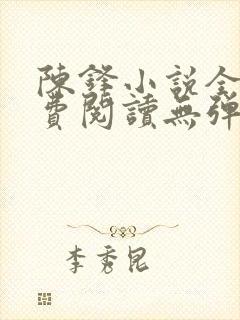 陳鋒小說全
費閱讀無彈
李秀昆